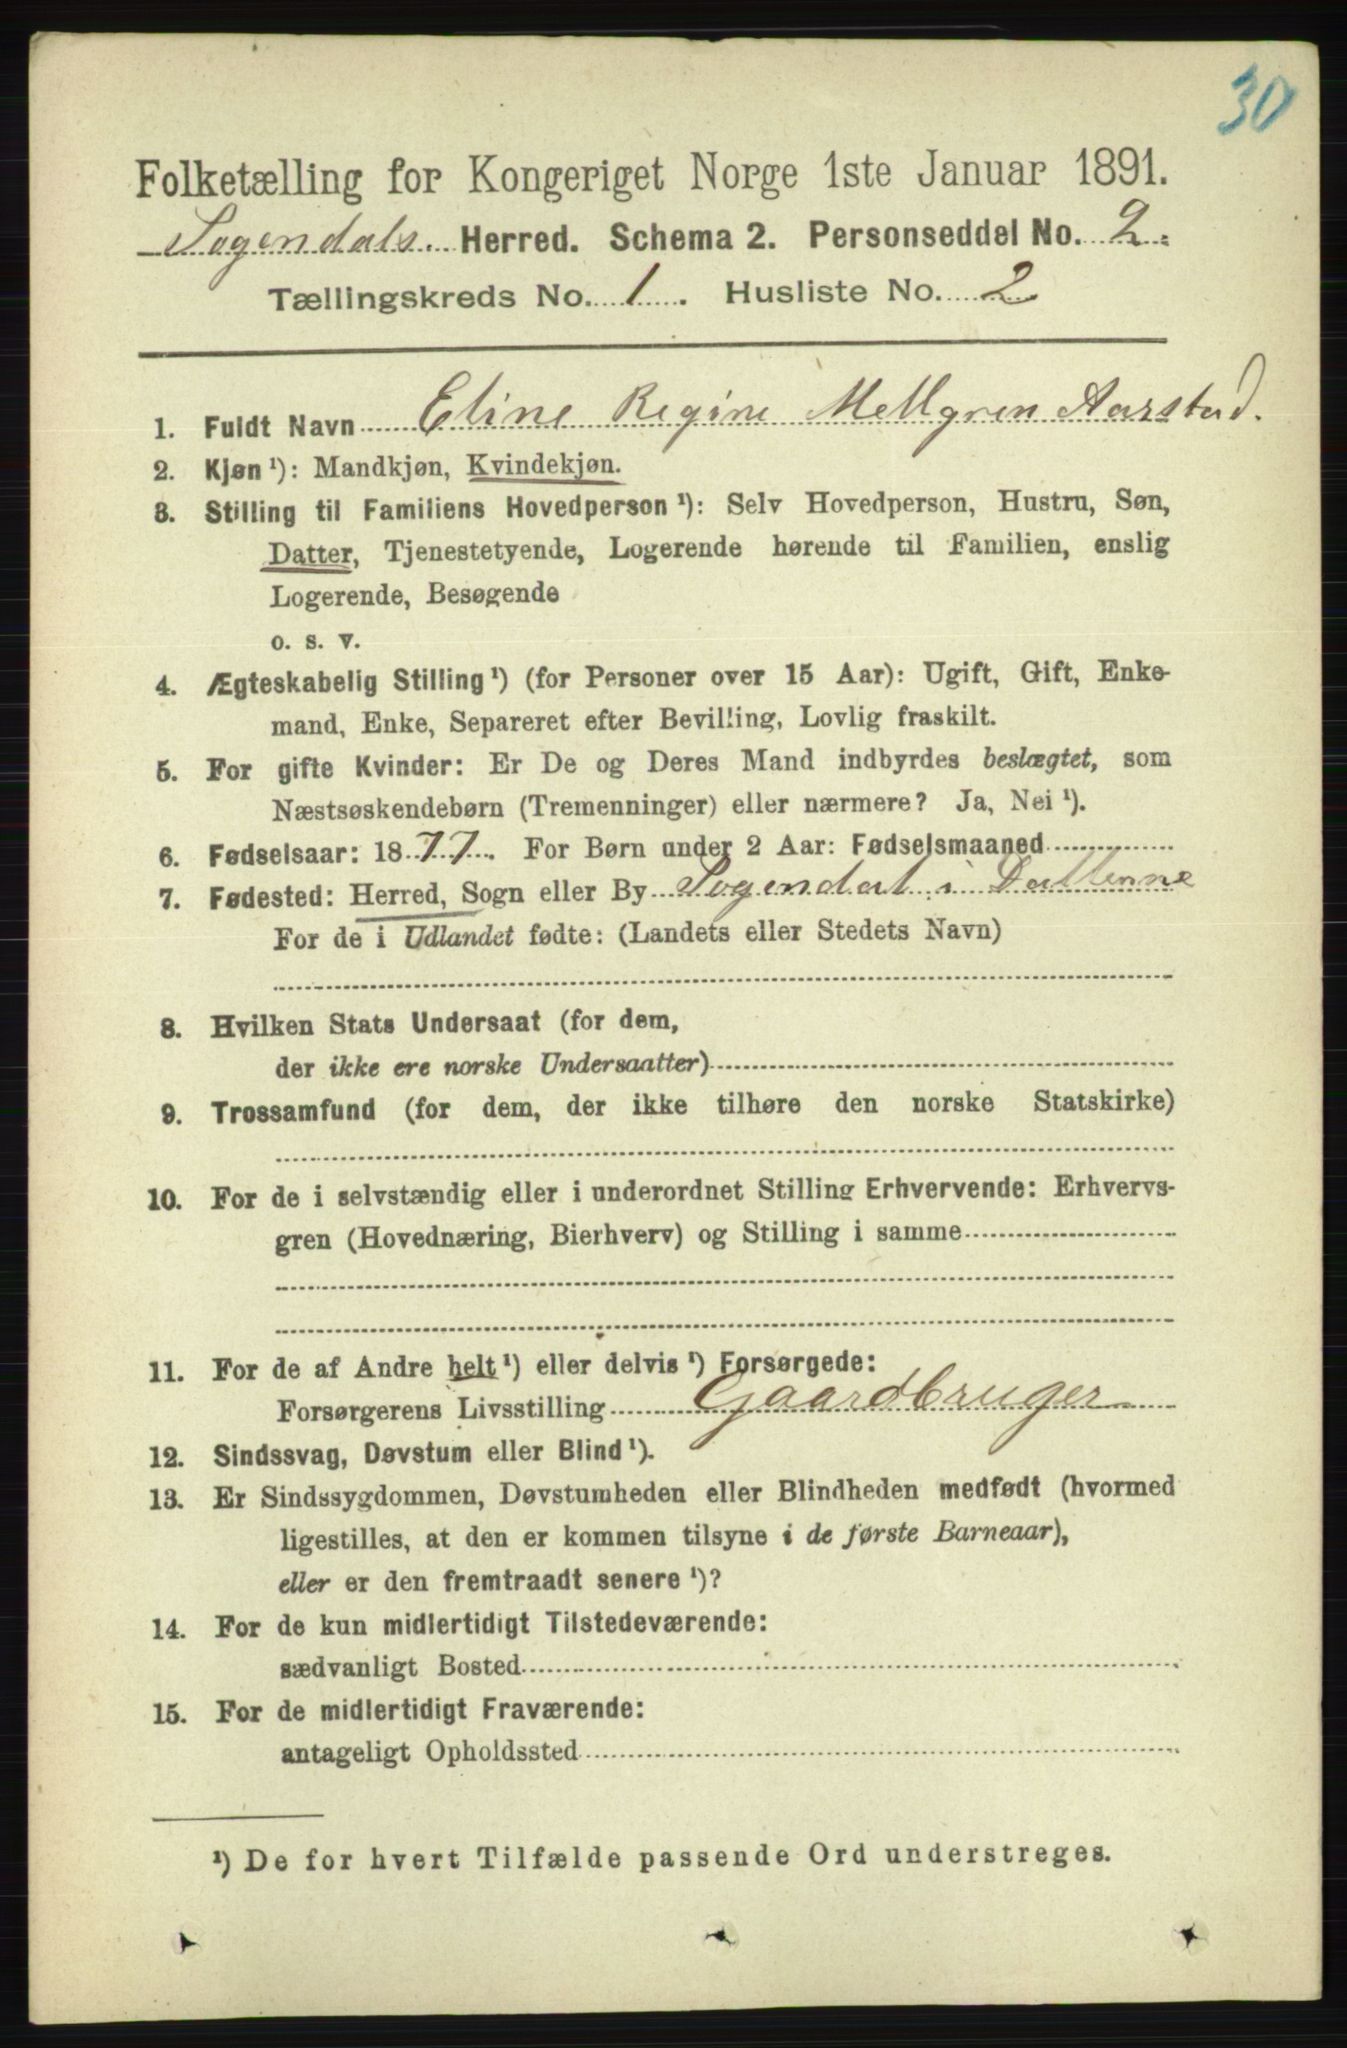 30
Folketælling for Kongeriget Norge 1ste Januar 1891.
Sogendals Herred. Schema 2. Personseddel No. 2.
Tællingskreds No. 1. Husliste No. 2
1. Fuldt Navn Eline Regine Mellgren Aarstad.
2. Kjøn ¹): Mandkjøn, Kvindekjøn.
3. Stilling til Familiens Hovedperson ¹): Selv Hovedperson, Hustru, Søn,
Datter, Tjenestetyende, Logerende hørende til Familien, enslig
Logerende, Besøgende
o. s. v.
4. Ægteskabelig Stilling ¹) (for Personer over 15 Aar): Ugift, Gift, Enke-
mand, Enke, Separeret efter Bevilling, Lovlig fraskilt.
5. For gifte Kvinder: Er De og Deres Mand indbyrdes beslægtet, som
Næstsøskendebørn (Tremenninger) eller nærmere? Ja, Nei ¹).
6. Fødselsaar: 1877. For Børn under 2 Aar: Fødselsmaaned
7. Fødested: Herred, Sogn eller By Sogendal i Dallenne
For de i Udlandet fødte: (Landets eller Stedets Navn)
8. Hvilken Stats Undersaat (for dem,
der ikke ere norske Undersaatter)
9. Trossamfund (for dem, der ikke tilhøre den norske Statskirke)
10. For de i selvstændig eller i underordnet Stilling Erhvervende: Erhvervs-
gren (Hovednæring, Bierhverv) og Stilling i samme
11. For de af Andre helt ¹) eller delvis ¹) Forsørgede:
Forsørgerens Livsstilling Gaardbruger
12. Sindssvag, Døvstum eller Blind ¹).
13. Er Sindssygdommen, Døvstumheden eller Blindheden medfødt (hvormed
ligestilles, at den er kommen tilsyne i de første Barneaar),
eller er den fremtraadt senere ¹)?
14. For de kun midlertidigt Tilstedeværende:
sædvanligt Bosted
15. For de midlertidigt Fraværende:
antageligt Opholdssted
¹) De for hvert Tilfælde passende Ord understreges.